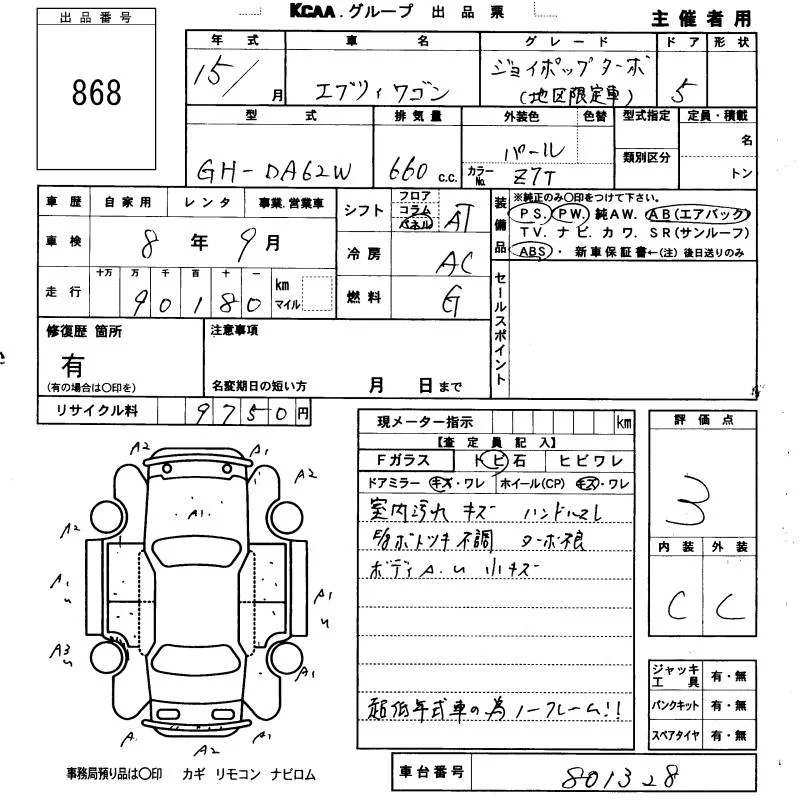 出品番号
868
KCAA.グループ 出品票
主催者用
年式 車名 グレード ドア 形状
15/ 月 エブリィワゴン ジョイポップターボ 5
(地区限定車)
型式 排気量 外装色 色替 型式指定 定員・積載
GH-DA62W 660 c.c. パール 類別区分 名
カラーNo. Z7T トン
車歴 自家用 レンタ 事業.営業車
車検 8年 9月
走行 十万 万 千 百 十 一
90180 km マイル
シフト フロア コラム パネル AT
冷房 AC
燃料 G
装備品 ※純正のみ○印をつけて下さい。
PS. PW. 純AW. AB(エアバック)
TV. ナビ. カワ. SR(サンルーフ)
ABS・ 新車保証書←(注) 後日送りのみ
セールスポイント
修復歴 箇所
有
(有の場合は○印を)
注意事項
名変期日の短い方 月 日まで
リサイクル料 9750円
現メーター指示 km
【査定員記入】
Fガラス トビ石 ヒビワレ
ドアミラー キズ・ワレ ホイール(CP) キズ・ワレ
室内汚れ キズ ハンドルスレ
ボトツキ不調 ターボ不良
ボディA.U 小キズ
超低年式車の為ノークレーム!!
評価点
3
内装 外装
C C
ジャッキ 工具 有・無
パンクキット 有・無
スペアタイヤ 有・無
A2 A1
A2
A2 A1
A1 U A1 U
A3 U A1
A A1
A2
事務局預り品は○印 カギ リモコン ナビロム
車台番号 801328